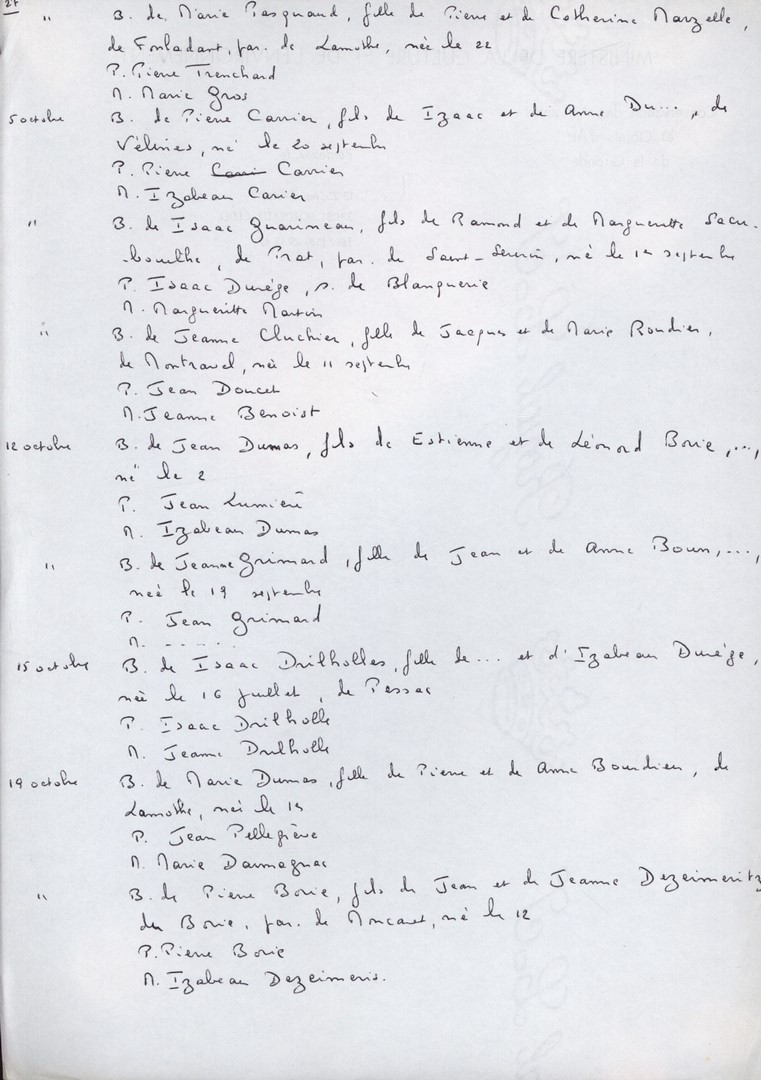 27
" B. de Marie Pasquaud, fille de Pierre et de Catherine Marzelle,
de Fonladant, par. de Lamothe, née le 22
P. Pierre Trenchard
M. Marie Gros
5 octobre B. de Pierre Carrier, fils de Izaac et de Anne Du..., de
Vélines, né le 20 septembre
P. Pierre Carrier
M. Izabeau Carier
" B. de Isaac Guarineau, fils de Ramond et de Margueritte Sacu-
-bouilhe, de Prat, par. de Saint-Seurin, né le 1er septembre
P. Isaac Durége, s. de Blanquerie
M. Margueritte Martin
" B. de Jeanne Cluchier, fille de Jacques et de Marie Roudier,
de Montravel, née le 11 septembre
P. Jean Doucet
M. Jeanne Benoist
12 octobre B. de Jean Dumas, fils de Estienne et de Léonord Borie, ...,
né le 2
P. Jean Lumière
M. Izabeau Dumas
" B. de Jeanne Grimard, fille de Jean et de Anne Boun, ...,
neé le 19 septembre
P. Jean Grimard
M. .....
15 octobre B. de Isaac Drilholles, fille de ... et d'Izabeau Durége,
née le 16 juillet, de Pessac
P. Isaac Drilholle
M. Jeanne Drilholle
19 octobre B. de Marie Dumas, fille de Pierre et de Anne Bourdieu, de
Lamothe, née le 15
P. Jean Pellegrève
M. Marie Darmagnac
" B. de Pierre Borie, fils de Jean et de Jeanne Dezeimeritz
du Borie, par. de Moncaret, né le 12
P. Pierre Borie
M. Izabeau Dezeimeris.